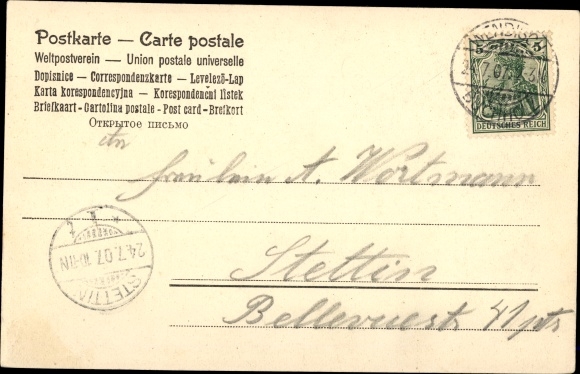 Postkarte — Carte postale
Weltpostverein — Union postale universelle
Dopisnice — Correspondenzkarte — Levelező-Lap
Karta korespondencyjna — Korespondenční lístek
Briefkaart - Cartolina postale - Post card - Brefkort
Открытое письмо
5 5
DEUTSCHES REICH
An
Fräulein A. Wortmann
STETTIN
24.7.07. 10-11N
Stettin
Bellevuestr 41 pts